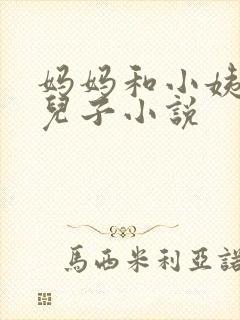 妈妈和小姨
兒子小説
馬西米利亞諾